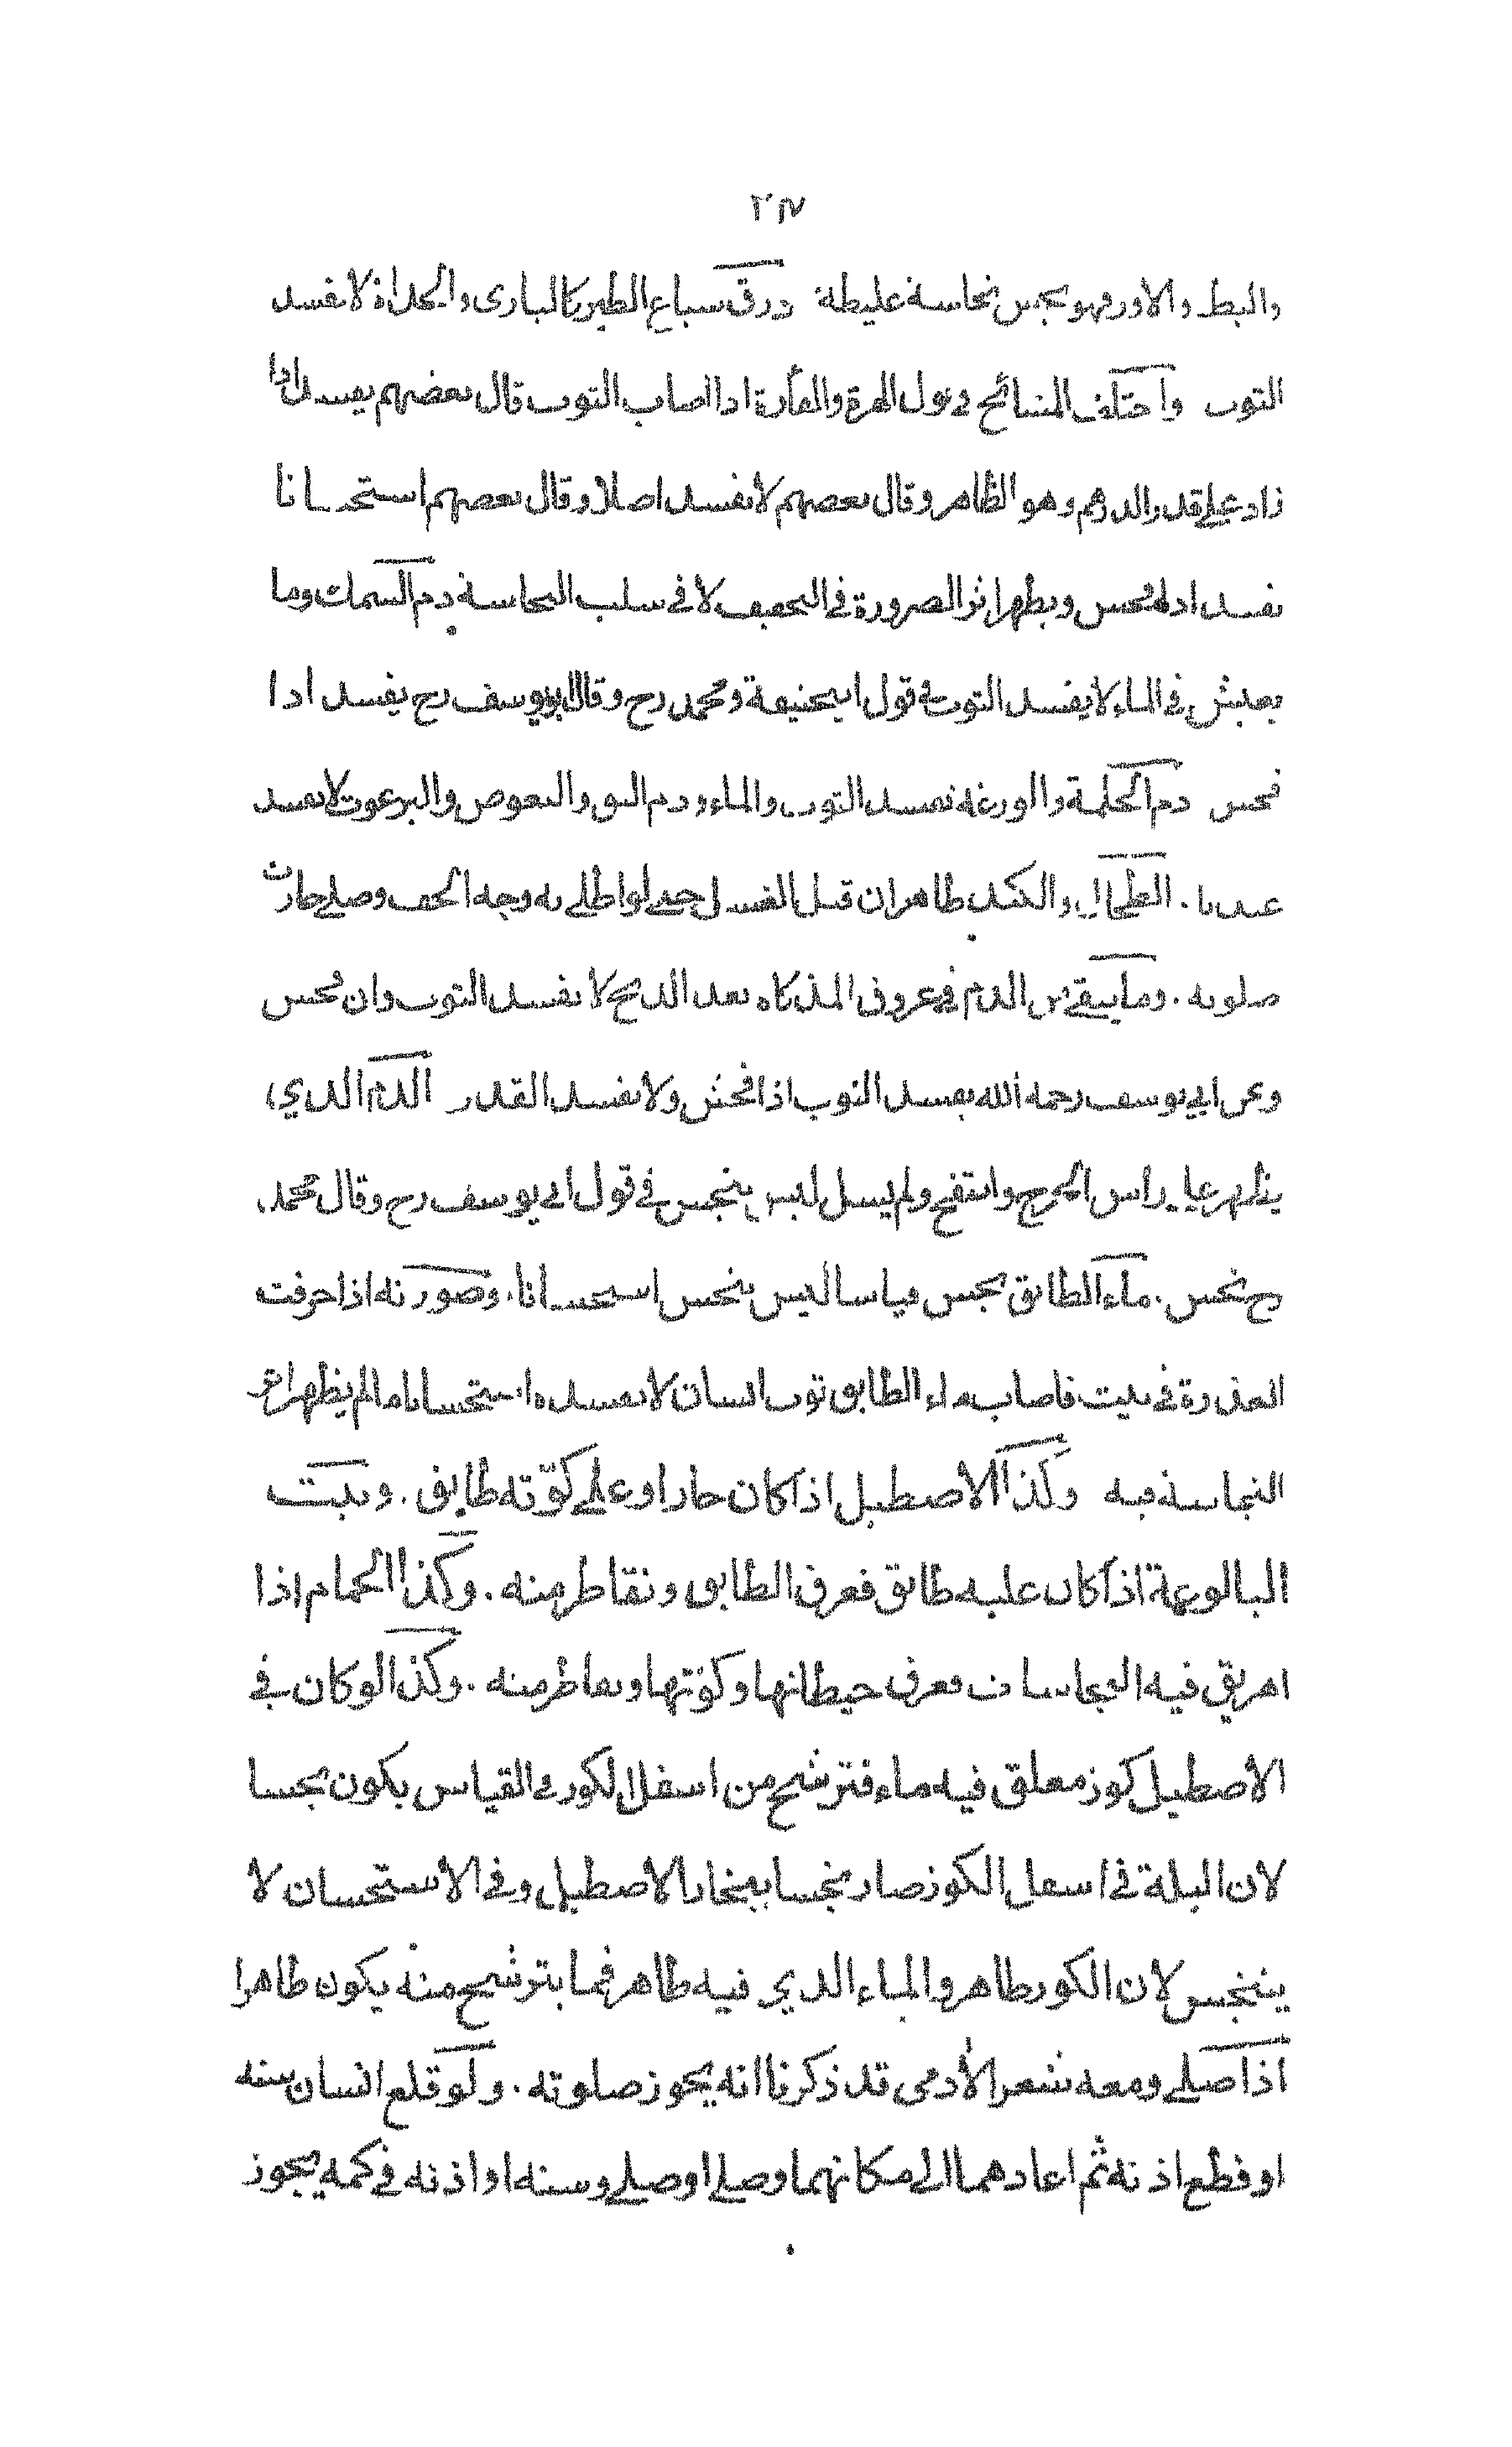 ٢١٧
والبط والاوز فهو نجس نجاسة غليظة ذرق سباع الطير كالبازى والحدأة لا يفسد
الثوب واختلف المشائخ في بول الهرة والفأرة اذا اصاب الثوب قال بعضهم يفسد اذا
زاد على قدر الدرهم وهو الظاهر وقال بعضهم لا يفسد اصلا وقال بعضهم استحسانا
يفسد اذا فحش ويظهر اثر الضرورة في التخفيف لا في سلب النجاسة دم السمك وما
يعيش في الماء لا يفسد الثوب في قول ابيحنيفة ومحمد رح وقال ابويوسف رح يفسد اذا
فحش دم الحلمة والوزغة يفسد الثوب والماء ودم البق والبعوض والبرغوث لا يفسد
عندنا . الطحال والكبد طاهران قبل الغسل حتى لو اطلى به وجه الخف وصلى جازت
صلوته . وما يبقى من الدم في عروق المذكاة بعد الذبح لا يفسد الثوب وان فحش
وعن ابي يوسف رحمه الله يفسد الثوب اذا فحش ولا يفسد القدر الدم الذي
يظهر على راس الجرح وانتفخ ولم يسل ليس بنجس في قول ابي يوسف رح وقال محمد
رح نجس . ماء الطابق نجس قياسا ليس بنجس استحسانا . وصورته اذا احرقت
العذرة في بيت فاصاب ماء الطابق ثوب انسان لا يفسده استحسانا مالم يظهر اثر
النجاسة فيه وكذا الاصطبل اذا كان حارا وعلى كوّته طابق . وبيت
البالوعة اذا كان عليه طابق فعرق الطابق وتقاطر منه . وكذا الحمام اذا
اهريق فيه النجاسات فعرق حيطانها وكوّتها وتقاطر منه . وكذا لو كان في
الاصطبل كوز معلق فيه ماء فترشح من اسفل الكوز في القياس يكون نجسا
لان البلة في اسفل الكوز صار نجسا ببخار الاصطبل وفي الاستحسان لا
يتنجس لان الكوز طاهر والماء الذي فيه طاهر فما يترشح منه يكون طاهرا
اذا صلى ومعه شعر الأدمى قد ذكرنا انه يجوز صلوته . ولو قلع انسان سنه
او قطع اذنه ثم اعادهما الى مكانهما وصلى او صلى وسنه او اذنه في كمه يجوز